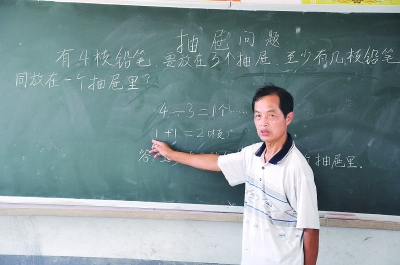 抽屉问题
有4枝铅笔,要放在3个抽屉,至少有几枝铅笔
同放在一个抽屉里?
4÷3=1个……
1+1=2(枝)
答:
抽屉里.